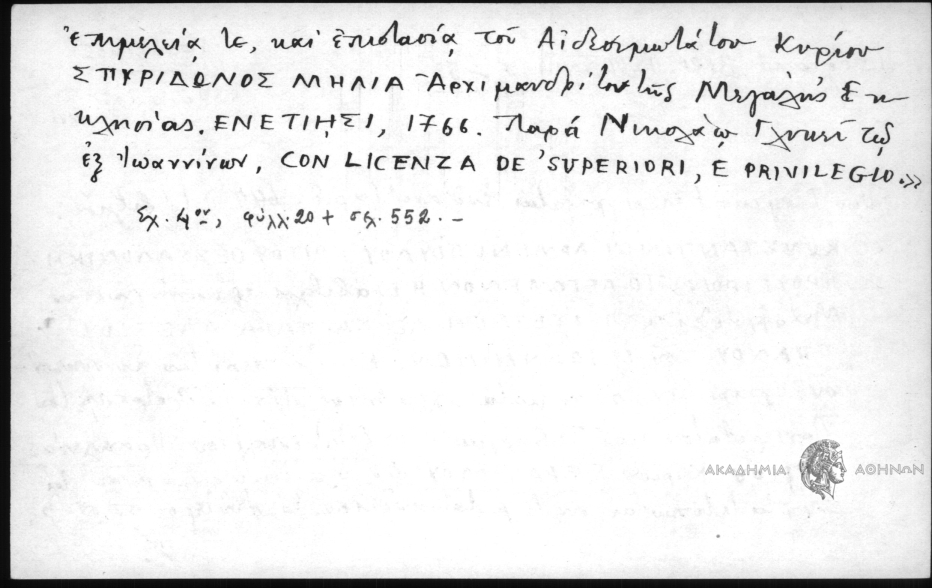 ἐπιμελείᾳ τε, καὶ ἐπιστασίᾳ τοῦ Αἰδεσιμωτάτου Κυρίου
ΣΠΥΡΙΔΩΝΟΣ ΜΗΛΙΑ Ἀρχιμανδρίτου τῆς Μεγάλης Ἐκ-
κλησίας. ΕΝΕΤΙΗΣΙ, 1766. Παρά Νικολάῳ Γλυκεῖ τῷ
ἐξ Ἰωαννίνων, CON LICENZA DE' SUPERIORI, E PRIVILEGIO.»
Σχ. 4ον, φύλλ. 20 + σελ. 552. –
ΑΚΑΔΗΜΙΑ ΑΘΗΝΩΝ